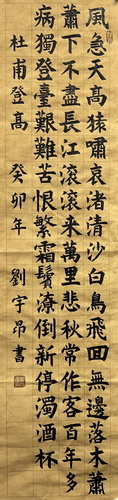 風急天高猿嘯哀渚清沙白鳥飛回無邊落木蕭
蕭下不盡長江滾滾來萬里悲秋常作客百年多
病獨登臺艱難苦恨繁霜鬢潦倒新停濁酒杯
杜甫登高 癸卯年 劉宇昂書